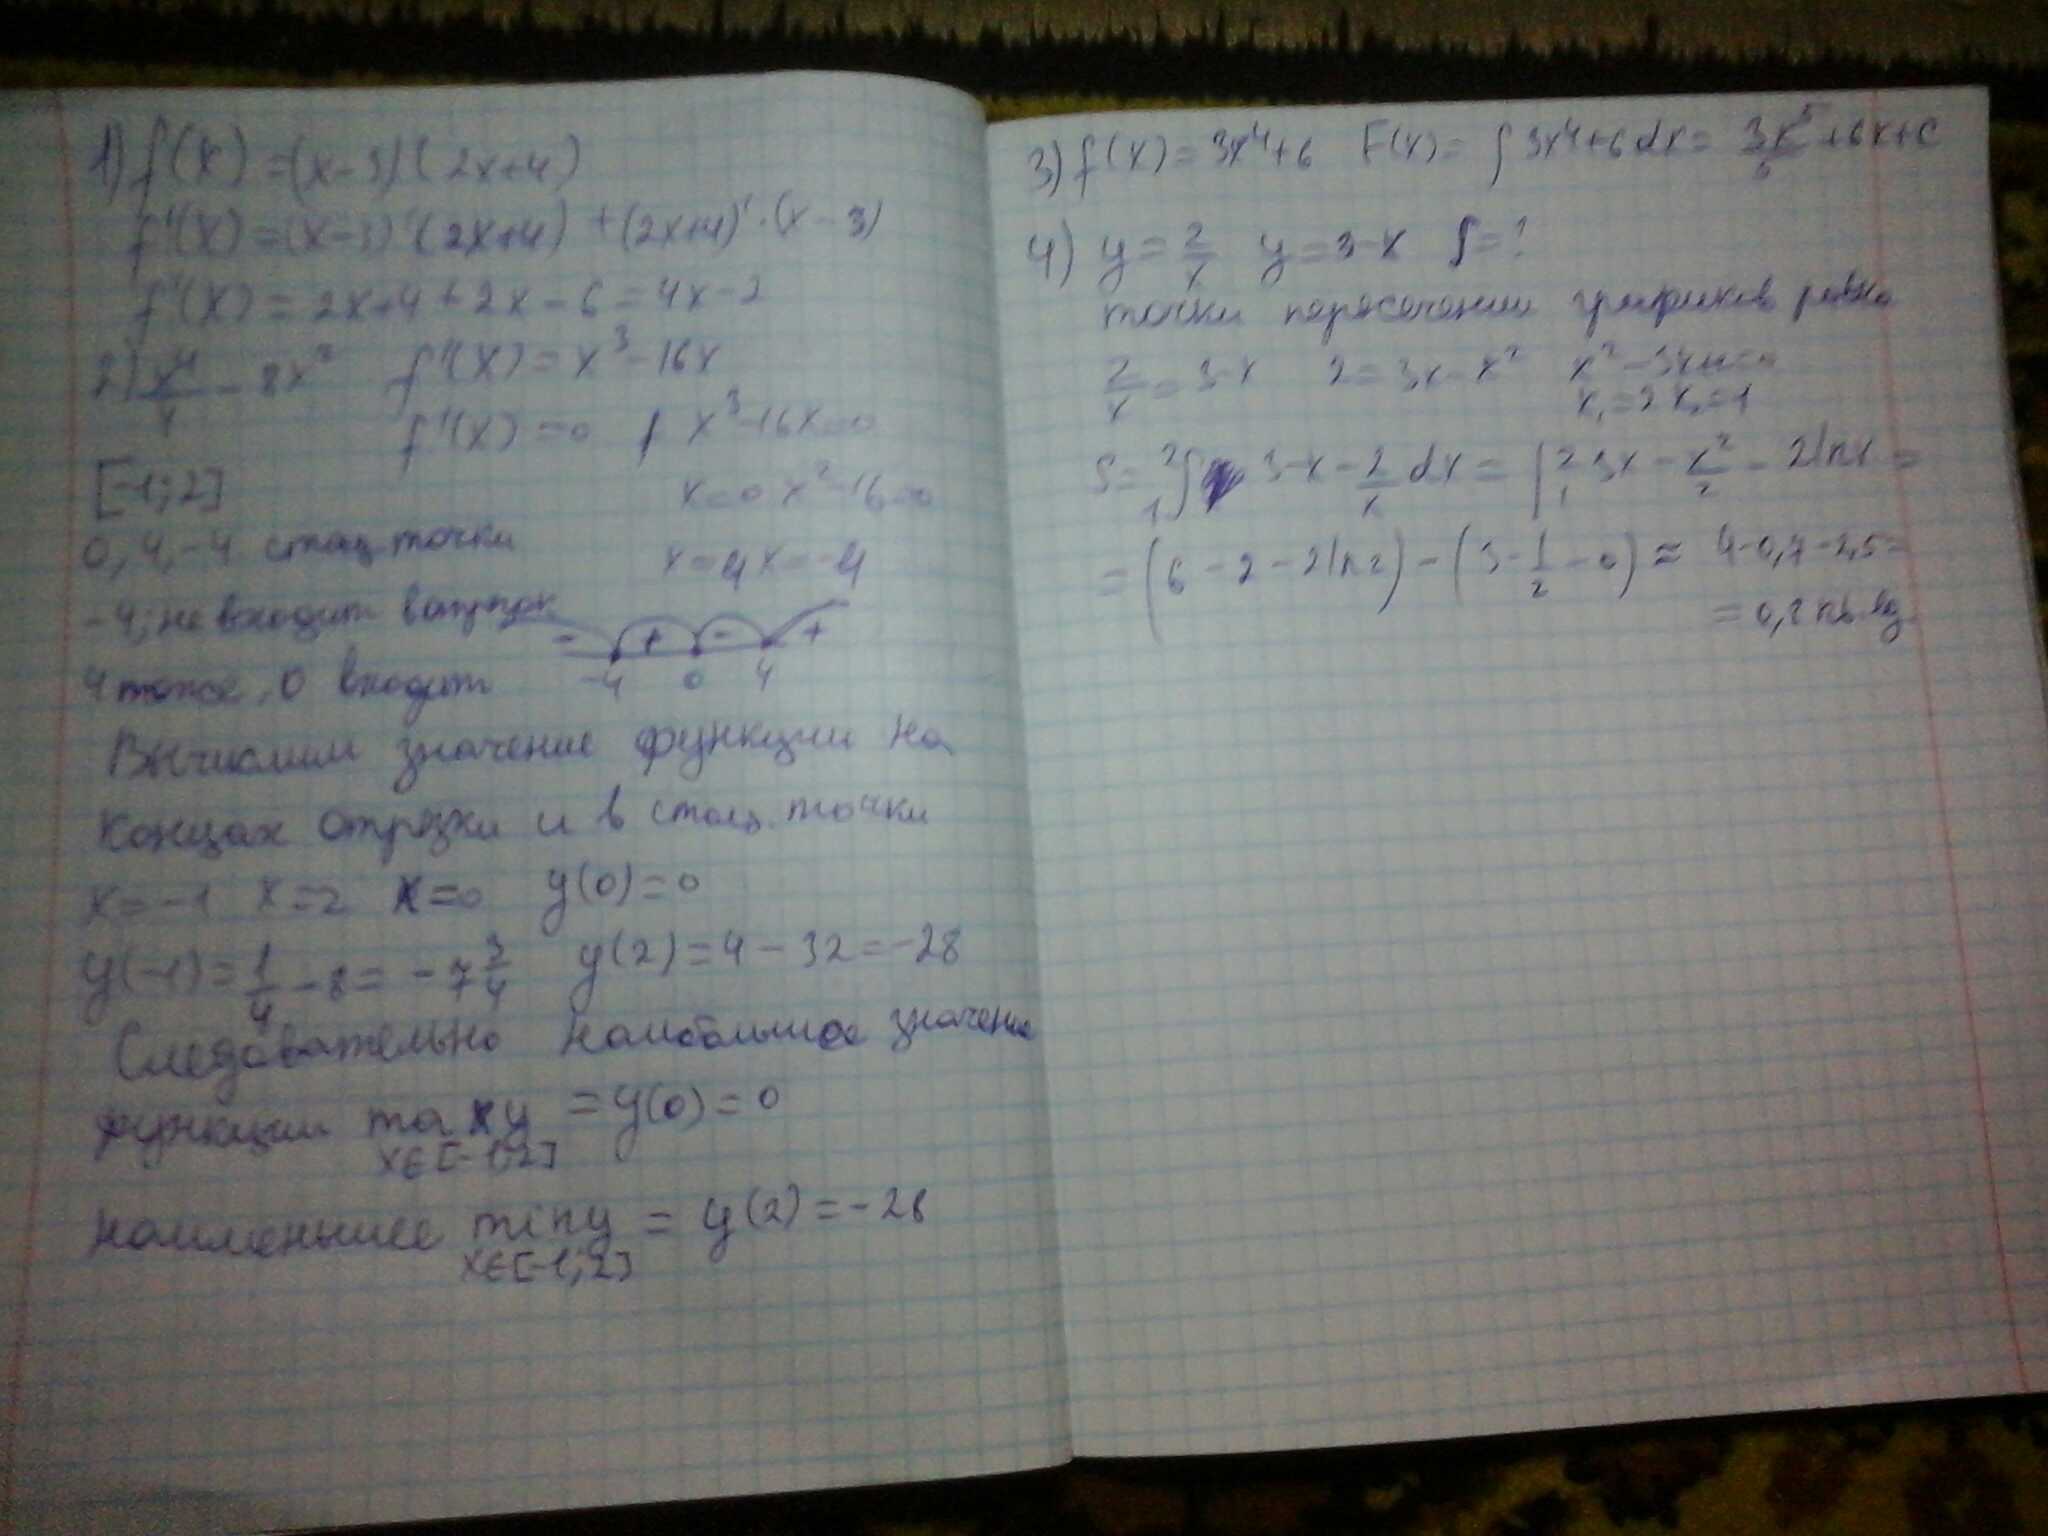 1) f(x) = (x-3)(2x+4)
f'(x) = (x-3)'(2x+4) + (2x+4)'·(x-3)
f'(x) = 2x+4+2x-6 = 4x-2
2) x⁴/4 - 8x² f'(x) = x³-16x
f'(x) = 0 x³-16x=0
[-1;2] x=0 x²-16=0
0, 4, -4 стац. точки x=4 x=-4
-4; не входит в отрезок
- + - +
4 тоже, 0 входит -4 0 4
Вычислим значение функции на
концах отрезки и в стац. точки
x=-1 x=2 x=0 y(0)=0
y(-1) = 1/4 - 8 = -7 3/4 y(2) = 4 - 32 = -28
Следовательно наибольшое значение
функции max y = y(0) = 0
x∈[-1;2]
наименьшее min y = y(2) = -28
x∈[-1;2]
3) f(x) = 3x⁴+6 F(x) = ∫ 3x⁴+6 dx = 3x⁵/5 + 6x + c
4) y = 2/x y = 3-x S=?
точки графиков
2/x = 3-x 2=3x-x²
x₁=2 x₂=1
S = ²₁∫ 3-x-2/x dx = |²₁ 3x - x²/2 - 2lnx =
= (6-2-2ln2) - (3-1/2-0) ≈ 4-0,7-2,5=
= 0,8 кв. ед.